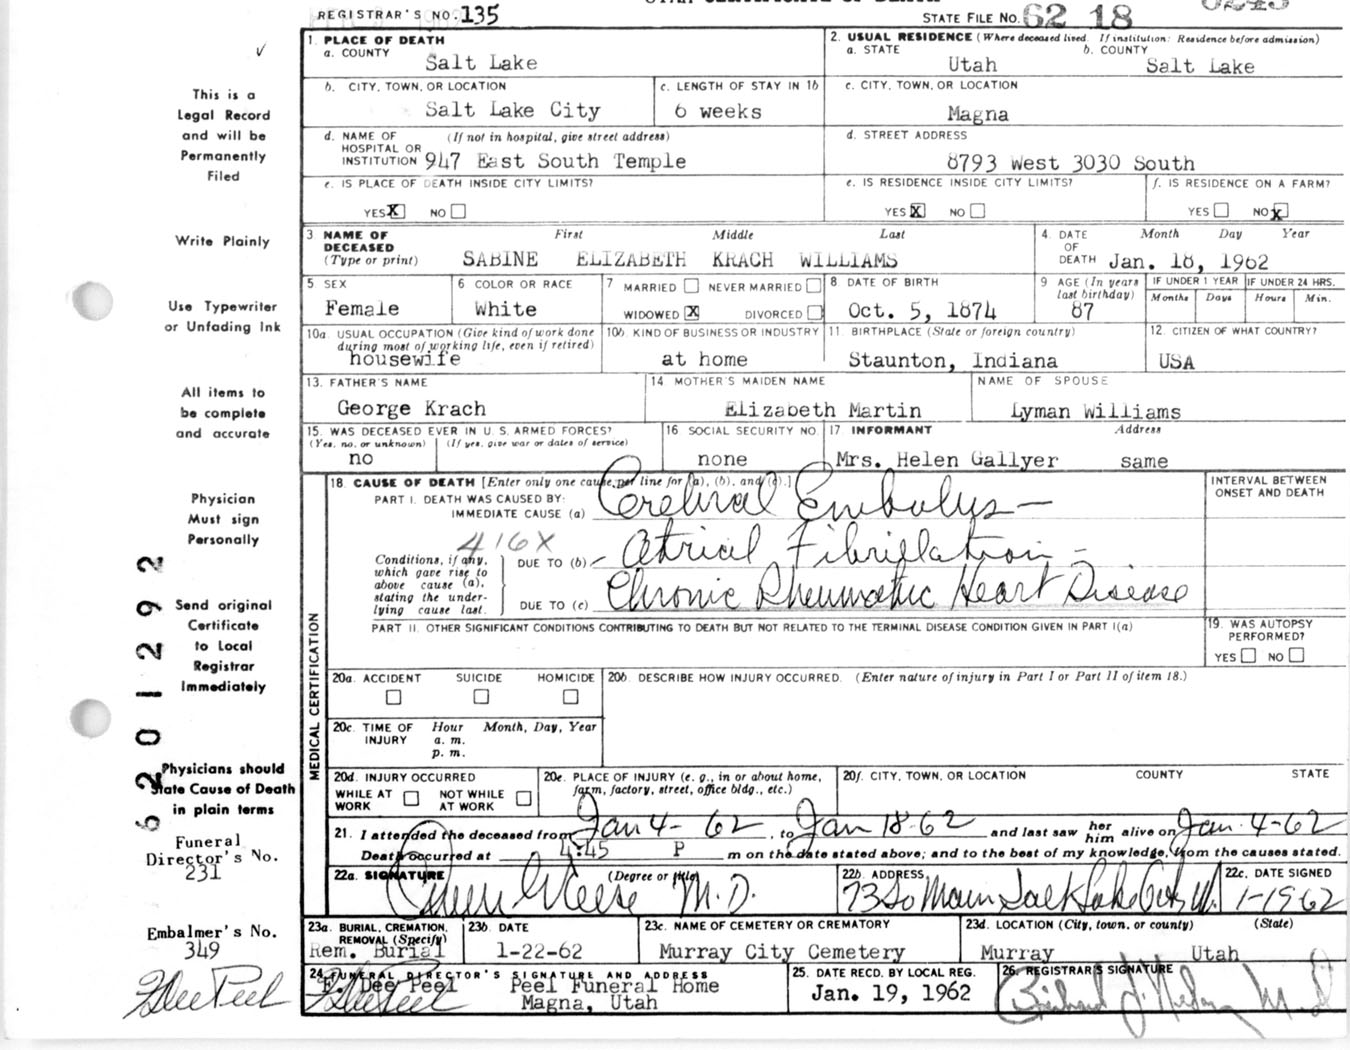 REGISTRAR'S NO. 135
STATE FILE NO. 62 18
1. PLACE OF DEATH
a. COUNTY
Salt Lake
2. USUAL RESIDENCE (Where deceased lived. If institution: Residence before admission)
a. STATE b. COUNTY
Utah Salt Lake
b. CITY, TOWN, OR LOCATION
Salt Lake City
c. LENGTH OF STAY IN 1b
6 weeks
c. CITY, TOWN, OR LOCATION
Magna
d. NAME OF HOSPITAL OR INSTITUTION (If not in hospital, give street address)
947 East South Temple
d. STREET ADDRESS
8793 West 3030 South
e. IS PLACE OF DEATH INSIDE CITY LIMITS?
YES X NO
e. IS RESIDENCE INSIDE CITY LIMITS?
YES X NO
f. IS RESIDENCE ON A FARM?
YES NO X
3. NAME OF DECEASED (Type or print)
First Middle Last
SABINE ELIZABETH KRACH WILLIAMS
4. DATE OF DEATH Month Day Year
Jan. 18, 1962
5 SEX
Female
6 COLOR OR RACE
White
7 MARRIED NEVER MARRIED
WIDOWED X DIVORCED
8 DATE OF BIRTH
Oct. 5, 1874
9 AGE (In years last birthday)
87
IF UNDER 1 YEAR IF UNDER 24 HRS.
Months Days Hours Min.
10a. USUAL OCCUPATION (Give kind of work done during most of working life, even if retired)
housewife
10b. KIND OF BUSINESS OR INDUSTRY
at home
11. BIRTHPLACE (State or foreign country)
Staunton, Indiana
12. CITIZEN OF WHAT COUNTRY?
USA
13. FATHER'S NAME
George Krach
14 MOTHER'S MAIDEN NAME
Elizabeth Martin
NAME OF SPOUSE
Lyman Williams
15. WAS DECEASED EVER IN U.S. ARMED FORCES?
(Yes, no, or unknown) (If yes, give war or dates of service)
no
16 SOCIAL SECURITY NO.
none
17 INFORMANT Address
Mrs. Helen Gallyer same
18. CAUSE OF DEATH [Enter only one cause per line for (a), (b), and (c).]
INTERVAL BETWEEN ONSET AND DEATH
PART I. DEATH WAS CAUSED BY:
IMMEDIATE CAUSE (a) Cerebral Embolus -
416X
Conditions, if any, which gave rise to above cause (a), stating the underlying cause last.
DUE TO (b) - Atrial Fibrillation -
DUE TO (c) Chronic Rheumatic Heart Disease
PART II. OTHER SIGNIFICANT CONDITIONS CONTRIBUTING TO DEATH BUT NOT RELATED TO THE TERMINAL DISEASE CONDITION GIVEN IN PART I(a)
19. WAS AUTOPSY PERFORMED?
YES NO
20a. ACCIDENT SUICIDE HOMICIDE
20b. DESCRIBE HOW INJURY OCCURRED. (Enter nature of injury in Part I or Part II of item 18.)
20c. TIME OF INJURY Hour Month, Day, Year
a. m.
p. m.
20d. INJURY OCCURRED
WHILE AT WORK NOT WHILE AT WORK
20e. PLACE OF INJURY (e. g., in or about home, farm, factory, street, office bldg., etc.)
20f. CITY, TOWN, OR LOCATION COUNTY STATE
21. I attended the deceased from Jan 4-62, to Jan 18-62 and last saw her him alive on Jan-4-62
Death occurred at 4:45 P m on the date stated above; and to the best of my knowledge, from the causes stated.
22a. SIGNATURE (Degree or title)
M.D.
22b. ADDRESS
73 So Main Salt Lake City U.
22c. DATE SIGNED
1-19-62
23a. BURIAL, CREMATION, REMOVAL (Specify)
Rem. Burial
23b. DATE
1-22-62
23c. NAME OF CEMETERY OR CREMATORY
Murray City Cemetery
23d. LOCATION (City, town, or county) (State)
Murray Utah
24. FUNERAL DIRECTOR'S SIGNATURE AND ADDRESS
E. Dee Peel Peel Funeral Home
Magna, Utah
25. DATE RECD. BY LOCAL REG.
Jan. 19, 1962
26. REGISTRAR'S SIGNATURE
MEDICAL CERTIFICATION
This is a
Legal Record
and will be
Permanently
Filed
Write Plainly
Use Typewriter
or Unfading Ink
All items to
be complete
and accurate
Physician
Must sign
Personally
Send original
Certificate
to Local
Registrar
Immediately
Physicians should
State Cause of Death
in plain terms
Funeral
Director's No.
231
Embalmer's No.
349
E Dee Peel
6 2 0 1 2 9 2